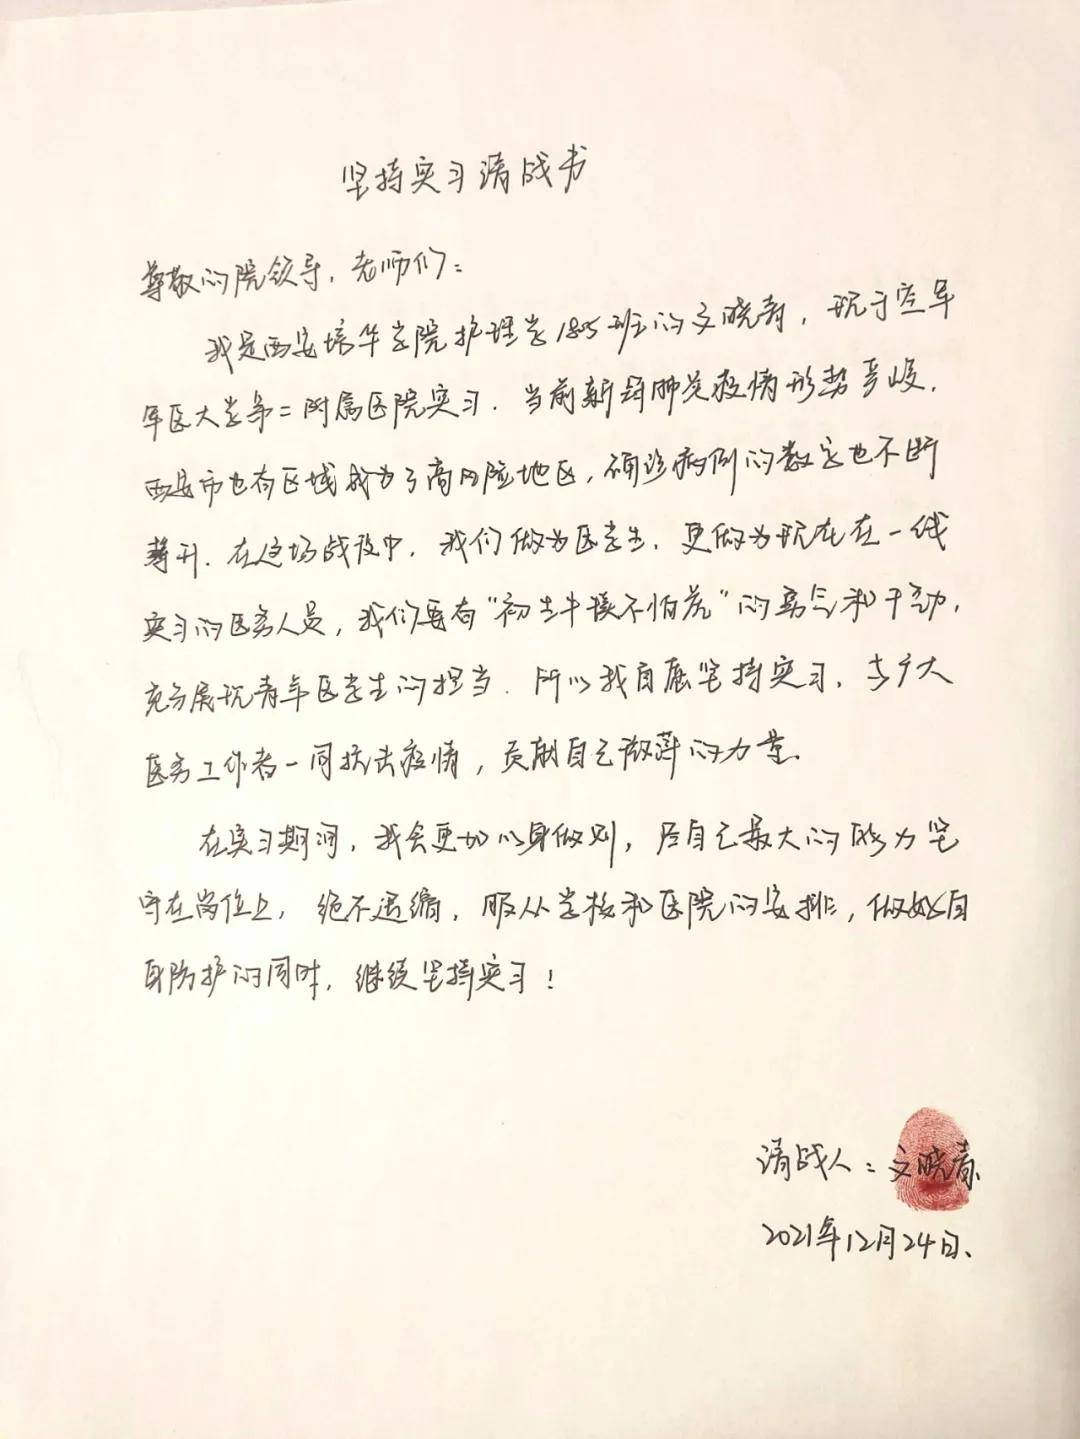 坚持实习请战书
尊敬的院领导，老师们：
我是西安培华学院护理学1805班的文晓春，现于空军
军医大学第二附属医院实习．当前新冠肺炎疫情形势严峻，
西安市也有区域成为了高风险地区，确诊病例的数字也不断
攀升．在这场战役中，我们做为医学生，更做为现在在一线
实习的医务人员，我们要有“初生牛犊不怕虎”的勇气和干劲，
充分展现青年医学生的担当．所以我自愿坚持实习，与广大
医务工作者一同抗击疫情，贡献自己微薄的力量．
在实习期间，我会更加以身做则，尽自己最大的能力坚
守在岗位上，绝不退缩，服从学校和医院的安排，做好自
身防护的同时，继续坚持实习！
请战人：文晓春．
2021年12月24日．